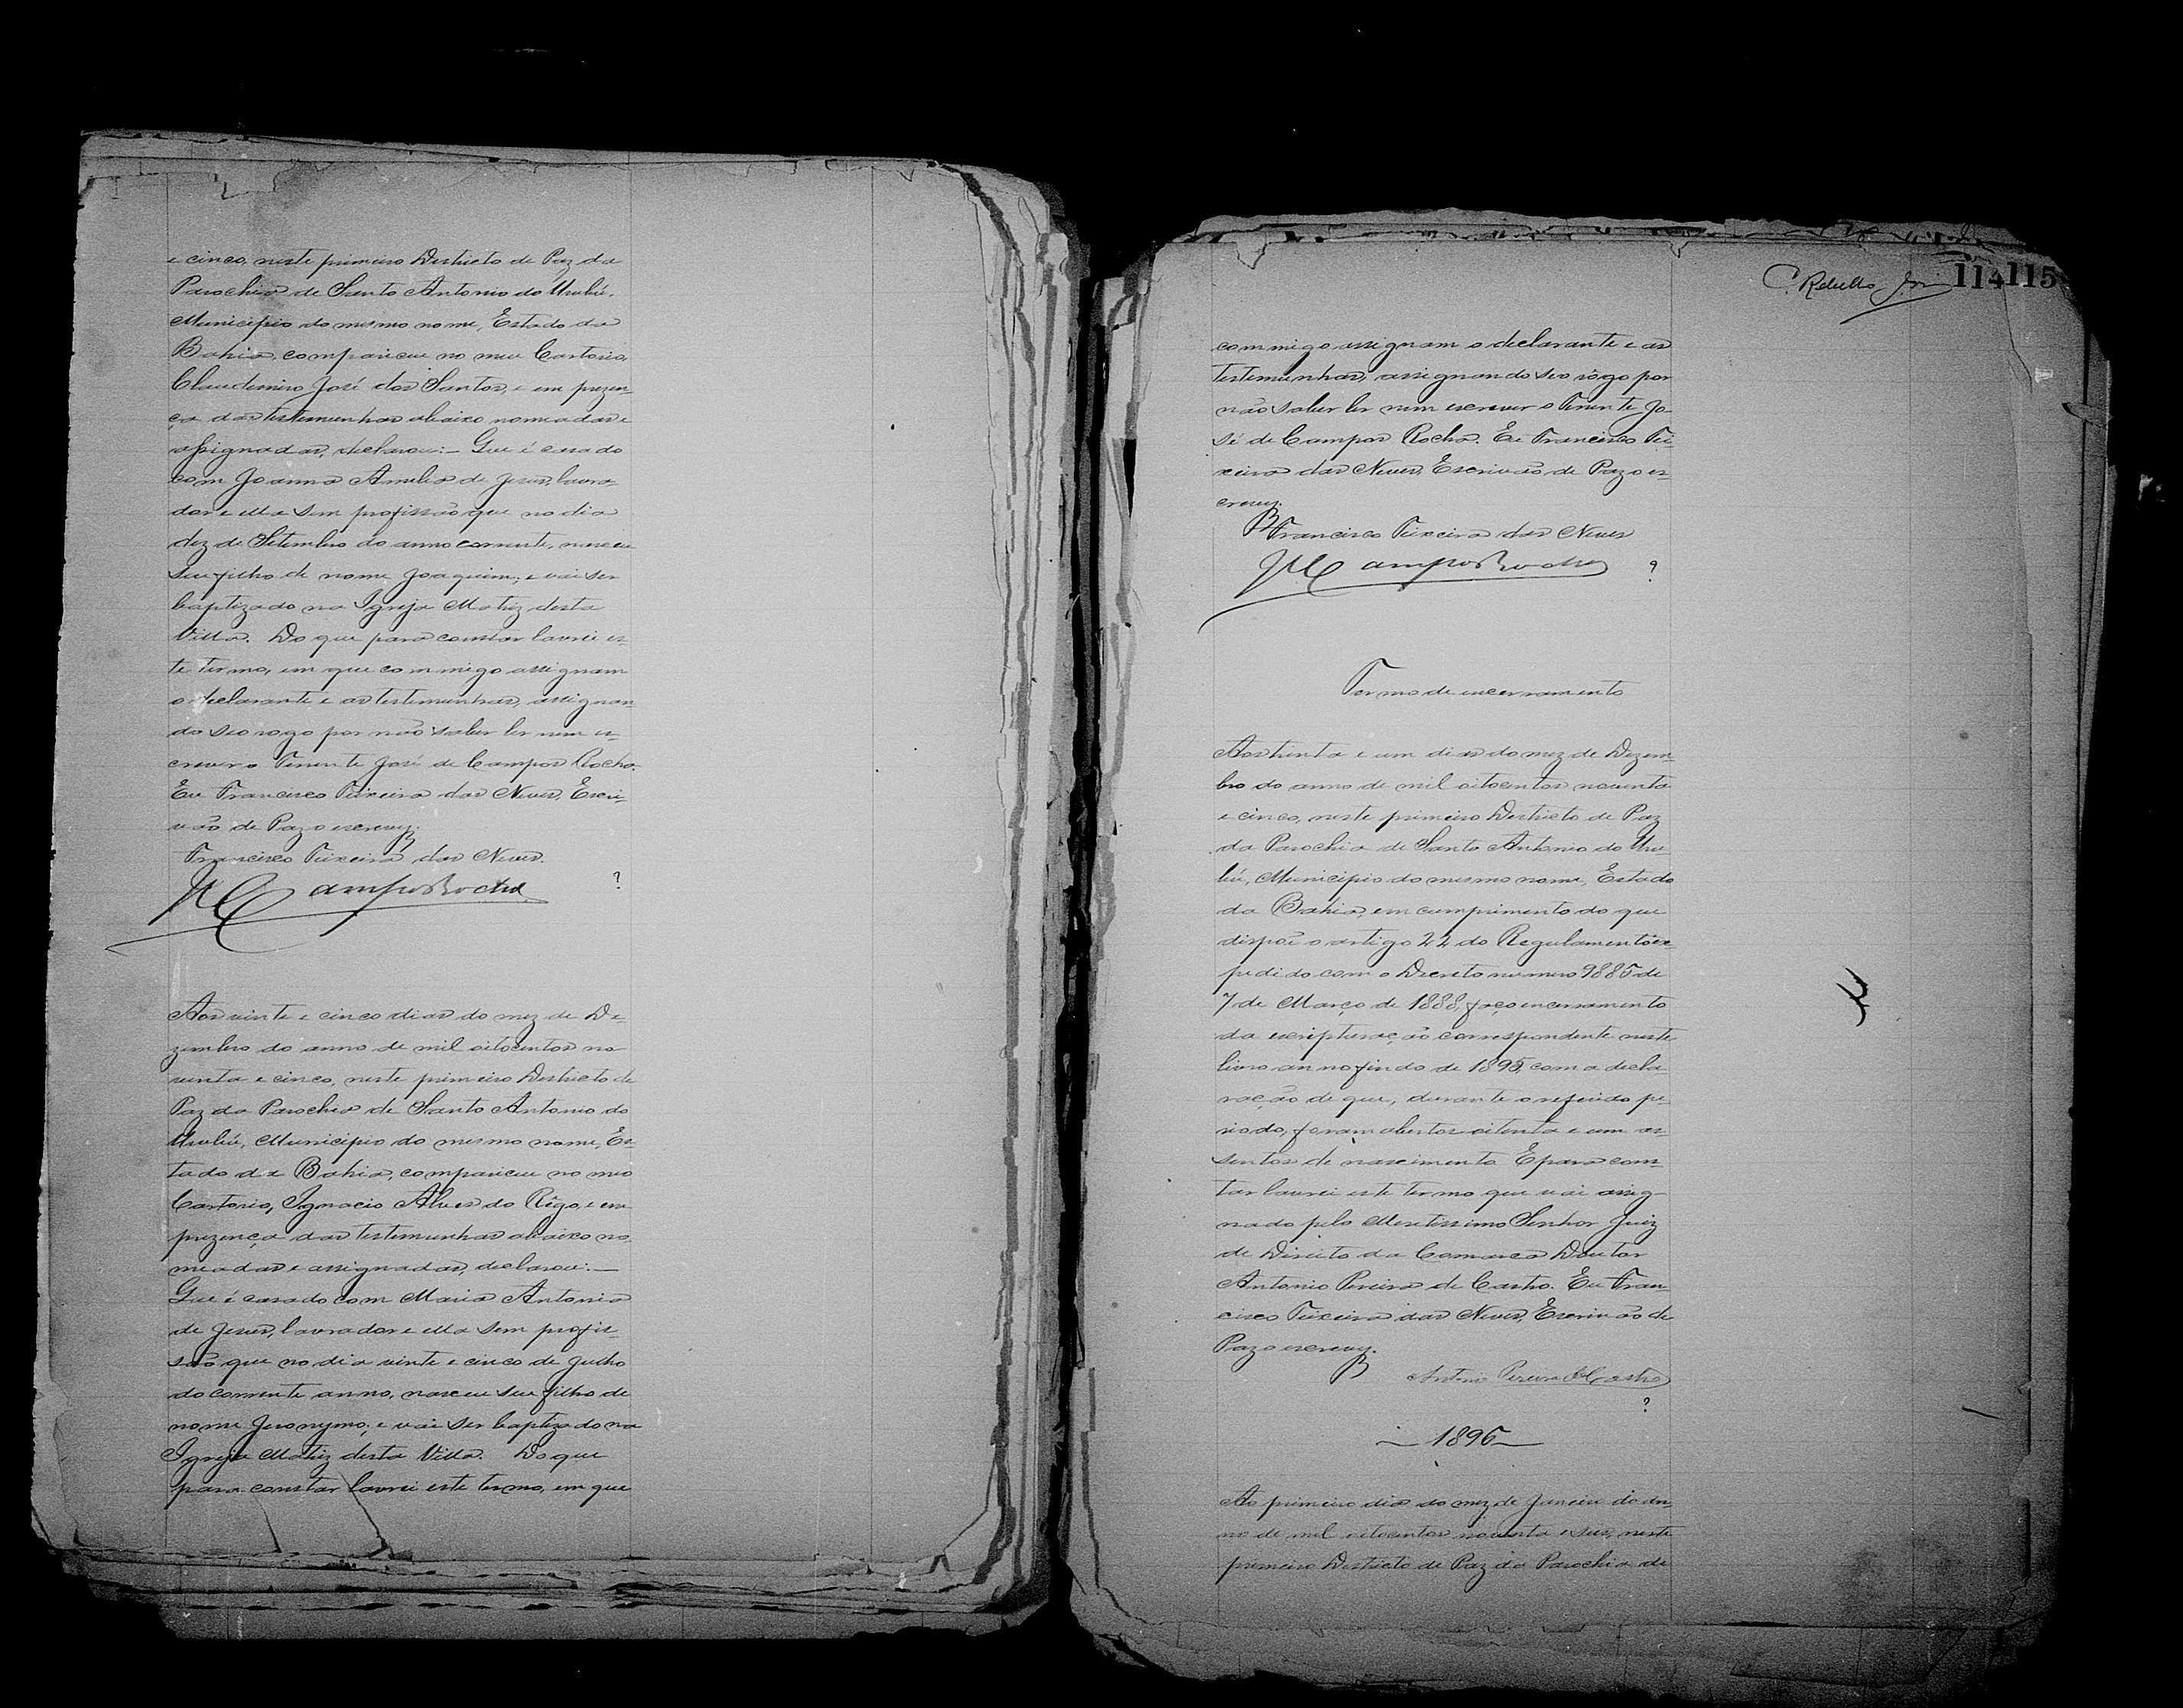 e cinco, neste primeiro Destricto de Paz da
Parochia de Santo Antonio do Urubú,
Municipio do mesmo nome, Estado da
Bahia, compareceu no meu Cartorio,
Claudemiro José dos Santos, e em prezen-
ça das testemunhas abaixo nomeadas e
assignadas, declarou:- Que é casado
com Joanna Amelia de Jesus, lavra-
dor e ella sem profissão que no dia
dez de Setembro do anno corrente, nasceu
seu filho de nome Joaquim; e vai ser
baptizado na Igreja Matriz desta
Villa. Do que para constar lavrei es-
te termo, em que commigo assignam
o declarante e as testemunhas, assignan-
do seo rogo por não saber ler nem es-
crever o Tenente José de Campos Rocha.
Eu Francisco Teixeira das Neves, Escri-
vão de Paz o escrevy.
Francisco Teixeira das Neves.
JCCamposRocha ?
Aos vinte e cinco dias do mez de De-
zembro do anno de mil oitocentos no-
venta e cinco, neste primeiro Destricto de
Paz da Parochia de Santo Antonio do
Urubú, Municipio do mesmo nome, Es-
tado da Bahia, compareceu no meo
Cartorio, Ignacio Alves do Rêgo, e em
prezença das testemunhas abaixo no-
meadas e assignadas, declarou:-
Que é casado com Maria Antonia
de Jesus, lavrador e ella sem profis-
são que no dia vinte e cinco de Julho
do corrente anno, nasceu seu filho de
nome Jeronymo; e vai ser baptizado na
Igreja Matriz desta Villa. Do que
para constar lavrei este termo, em que
114 115
commigo assignam o declarante e as
testemunhas, assignando seo rôgo por
não saber ler nem escrever o Tenente Jo-
sé de Campos Rocha. Eu Francisco Tei-
xeira das Neves, Escrivão de Paz o es-
crevy.
Francisco Teixeira das Neves
JCCamposRocha ?
Termo de encerramento
Aos trinta e um dias do mez de Dezem-
bro do anno de mil oitocentos noventa
e cinco, neste primeiro Destricto de Paz
da Parochia de Santo Antonio do Uru-
bú, Municipio do mesmo nome, Estado
da Bahia, em cumprimento do que
dispõe o artigo 22 do Regulamento ex-
pedido com o Decreto numero 9885 de
7 de Março de 1888, faço encerramento
da escripturação correspondente neste
livro anno findo de 1895, com a decla-
ração de que, durante o referido pe-
riodo, foram abertos oitenta e um as-
sentos de nascimento. E para cons-
tar lavrei este termo que vai assig-
nado pelo Meretissimo Senhor Juiz
de Direito da Comarca Doutor
Antonio Pereira de Castro. Eu Fran-
cisco Teixeira das Neves, Escrivão de
Paz o escrevy.
Antonio Pereira de Castro
?
— 1896 —
Ao primeiro dia do mez de Janeiro do an-
no de mil oitocentos noventa e seis, neste
primeiro Destricto de Paz da Parochia de